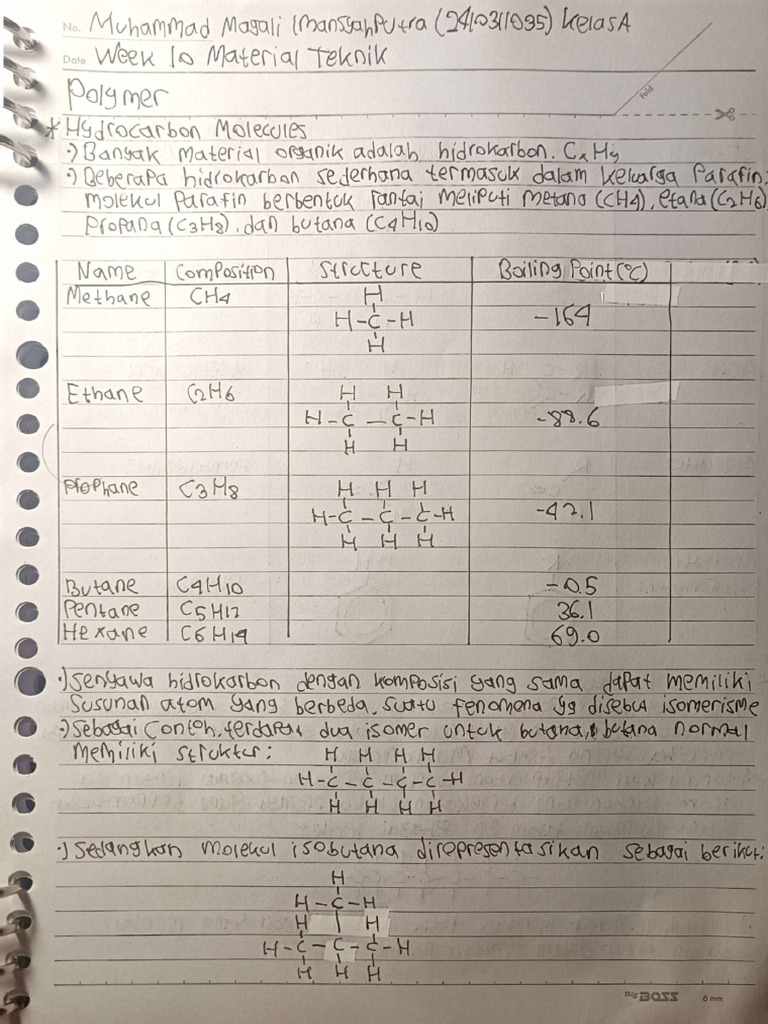 No. Muhammad Magali Imansyah Putra (2410311095) Kelas A
Date Week 10 Material Teknik
Polymer
Fold
* Hydrocarbon Molecules
•) Banyak material organik adalah hidrokarbon. CxHy
•) Beberapa hidrokarbon sederhana termasuk dalam keluarga Parafin;
molekul Parafin berbentuk rantai meliputi metana (CH4), etana (C2H6)
Propana (C3H8), dan butana (C4H10)
Name Composition Structure Boiling Point (°C)
Methane CH4 -164
H
H-C-H
H
Ethane C2H6 -88.6
H H
H-C-C-H
H H
Prophane C3H8 -42.1
H H H
H-C-C-C-H
H H H
Butane C4H10 -0.5
Pentane C5H12 36.1
Hexane C6H14 69.0
•) Senyawa hidrokarbon dengan komposisi yang sama dapat memiliki
susunan atom yang berbeda, suatu fenomena yg disebut isomerisme
•) Sebagai contoh, terdapat dua isomer untuk butana, butana normal
memiliki struktur:
H H H H
H-C-C-C-C-H
H H H H
•) Sedangkan molekul isobutana direpresentasikan sebagai berikut:
H
H-C-H
H | H
H-C-C-C-H
H H H
Big BOSS 6 mm